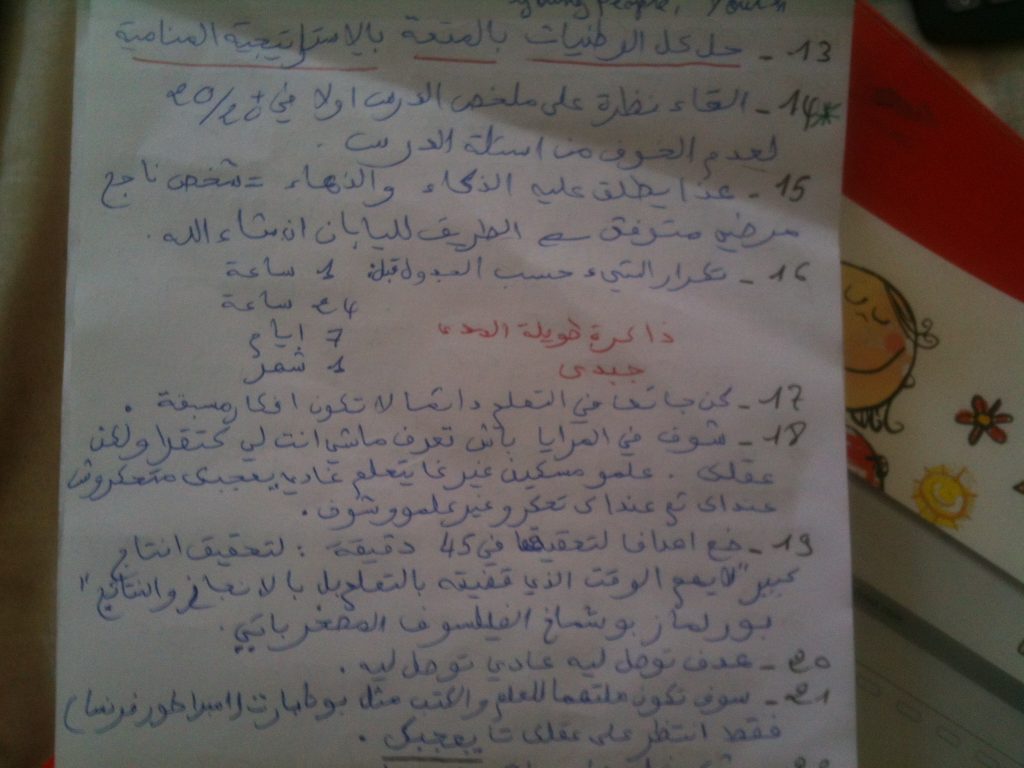 young people,
13 - حل كل الوضعيات بالمتعة بالاستراتيجية المنامية
14* - القاء نظرة على ملخص الدرس اولا في 20/20
لعدم الخوف من اسئلة الدرس .
15 - هذا يطلق عليه الذكاء والدهاء = شخص ناجح
مرضي متوفق في الطريق لليابان ان شاء الله .
16 - تكرار الشيء حسب الجدول قبل: 1 ساعة
24 ساعة
ذاكرة طويلة المدى 7 ايام
جبدى 1 شهر
17 - كن جائعا في التعلم دائما لا تكون افكار مسبقة .
18 - شوف في المرايا باش تعرف ماشي انت لي تحتقرا ولكن
عقلك . علمو مسكين غير غا يتعلم غاديا يعجبك متعكروش
عنداك تم عنداك تعكرو غير علمو وشوف .
19 - ضع اهدافا لتحقيقها في 45 دقيقة : لتحقيق انتاج
كبير "لا يهم الوقت الذي قضيته بالتعلم بل بالانجاز والنتائج"
بوشماخ الفيلسوف
20 - هدف توصل ليه عادي توصل ليه .
21 - سوف تكون ملتهما للعلم والكتب مثل بونابارت (امبراطور فرنسا)
فقط انتظر على عقلك تا يعجبك .